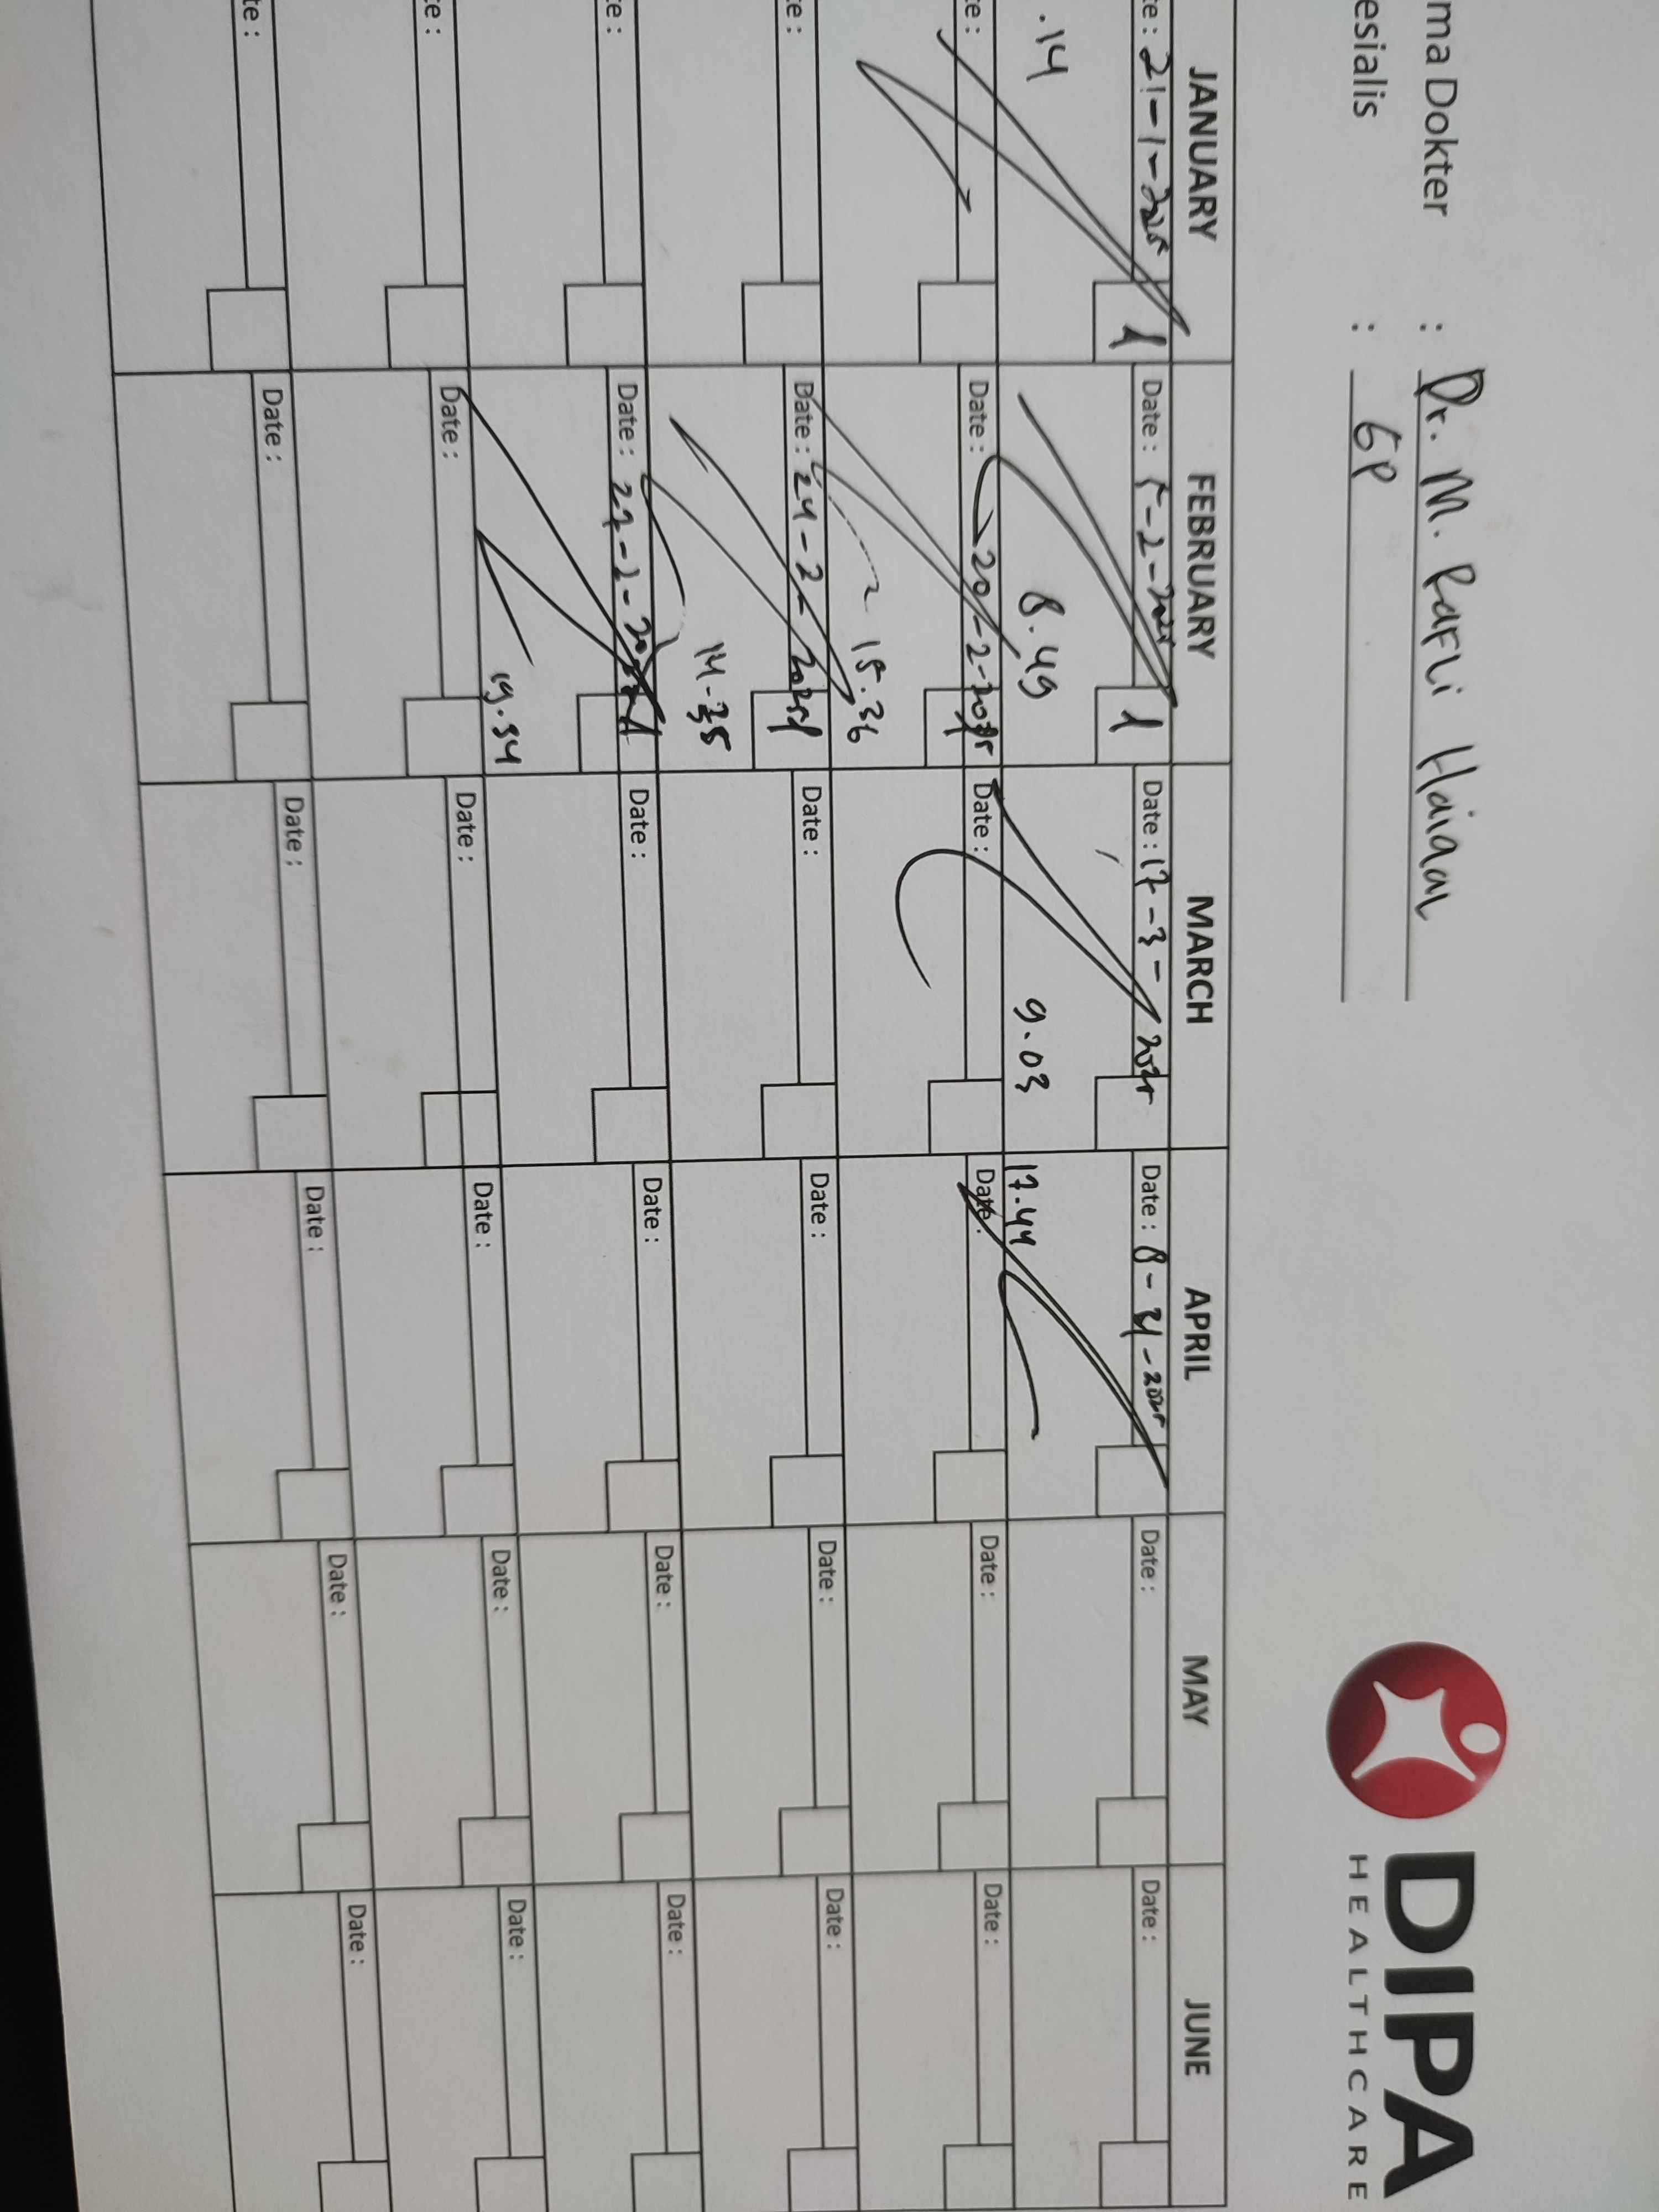 ma Dokter : Dr. M. Rafli Haidar
esialis : GP
DIPA
HEALTHCARE
JANUARY FEBRUARY MARCH APRIL MAY JUNE
te : 21-1-2025 1 Date : 5-2-2025 1 Date : 17-3-2025 Date : 8-4-2025 Date : Date :
.14 8.49 9.03 17.44
te : Date : 20-2-2025 Date : Date : Date : Date :
15.36
te : Date : 24-2-2025 Date : Date : Date : Date :
14.35
te : Date : 27-2-2025 Date : Date : Date : Date :
19.34
te : Date : Date : Date : Date : Date :
te : Date : Date : Date : Date : Date :